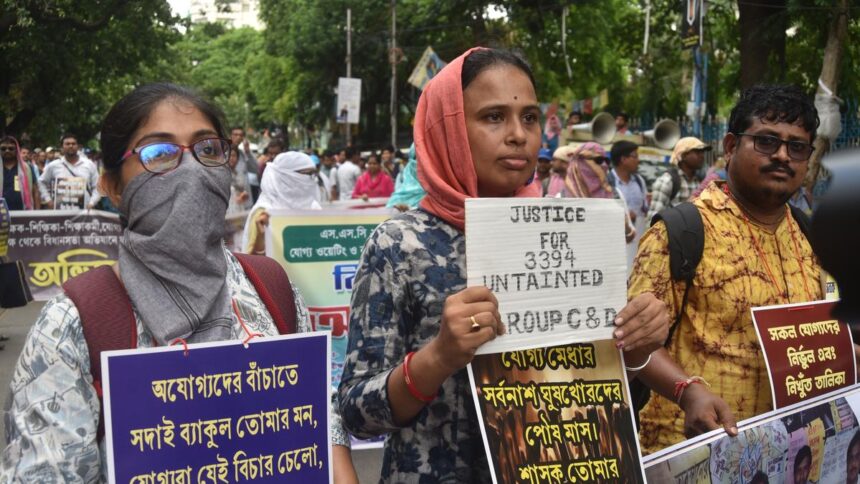 ক-শিক্ষিকা-শিক্ষাকর্মী,যোগ্য
ক থেকে বিধানসভা অভিযানে
এস.এস.সি
যোগ্য ওয়েটিং ও
অযোগ্যদের বাঁচাতে
সদাই ব্যাকুল তোমার মন,
যোগ্যরা যেই বিচার চেলো,
JUSTICE
FOR
3394
UNTAINTED
GROUP C & D
যোগ্য মেধার
সর্বনাশ ঘুষখোরদের
পৌষ মাস।
শাসক তোমার
সকল যোগ্যদের
নির্ভুল এবং
নিখুঁত তালিকা